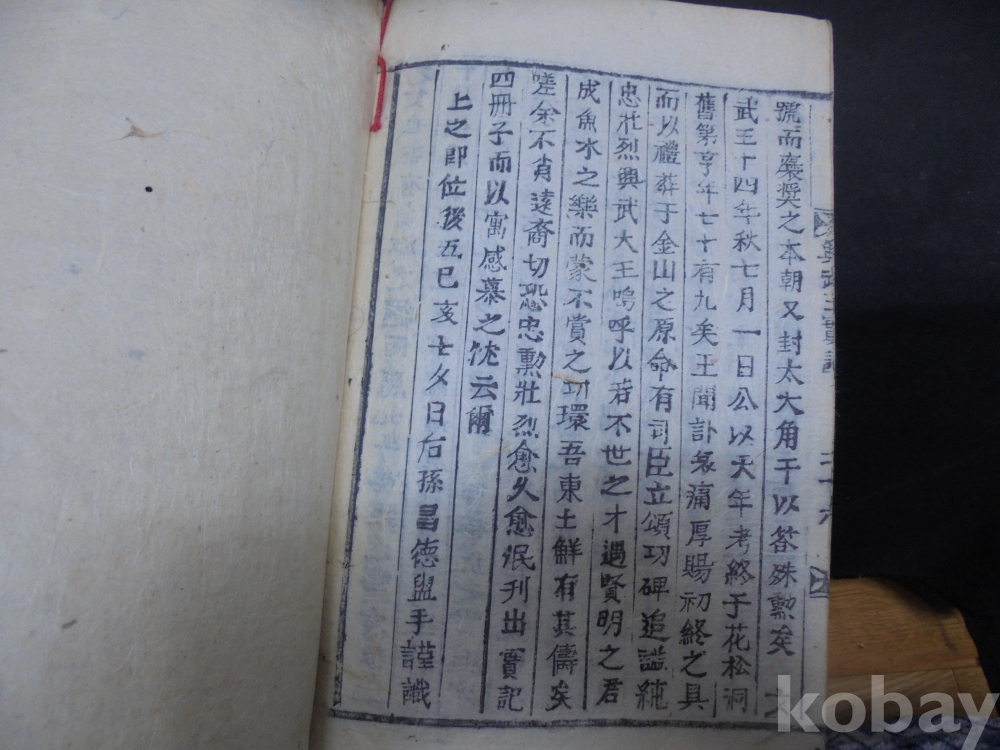 號而褒奬之本朝又封太大角干以答殊勳矣文
武王十四年秋七月一日公以天年考終于花松洞
舊第享年七十有九矣王聞訃哀痛厚賜初終之具
而以禮葬于金山之原命有司臣立頌功碑追謚純
忠壯烈興武大王嗚呼以若不世之才遇賢明之君
成魚水之樂而蒙不賞之功環吾東土鮮有其儔矣
嗟余不肖遠裔切恐忠勳壯烈愈久愈泯刊出實記
四冊子而以寓感慕之忱云爾
上之即位後五己亥七夕日后孫昌德盥手謹識
興武王實記
二十六
kobay